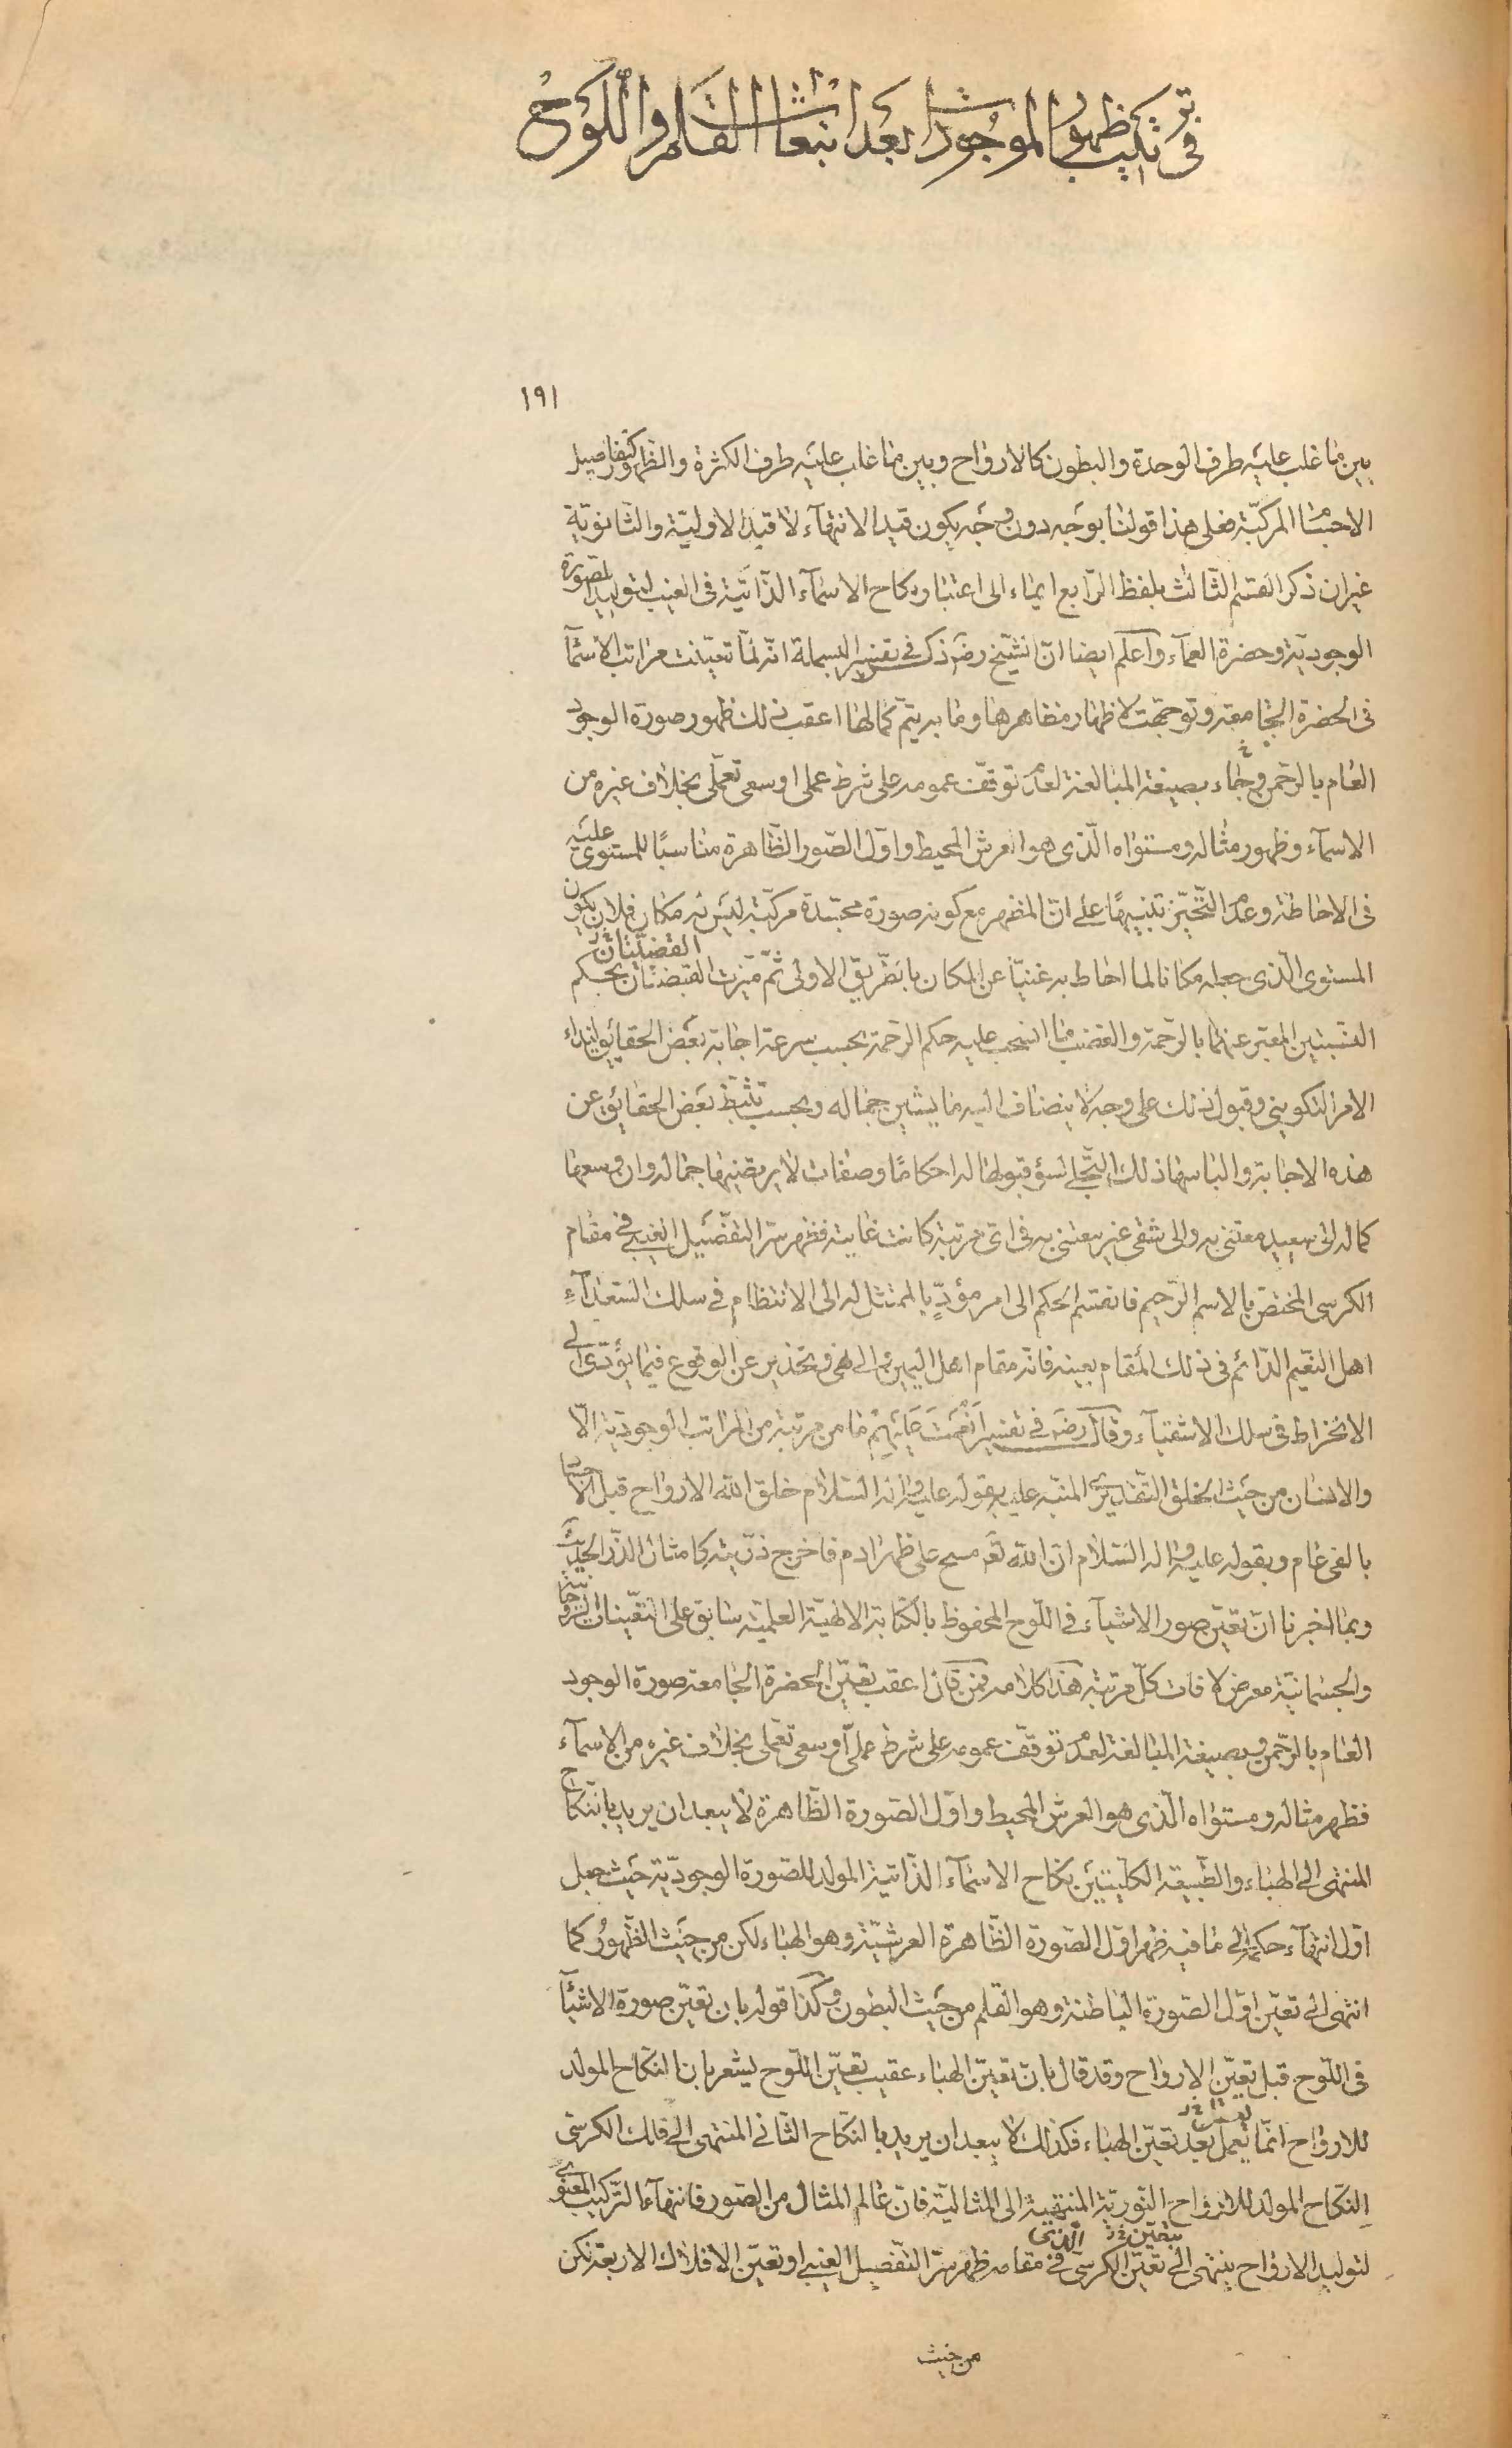 فى ترتيب ظهور الموجودات بعد انبعاث القلم واللوح
١٩١
بين ما غلب عليه طرف الوحدة والبطون كالارواح وبين ما غلب عليه طرف الكثرة والظهور كتفاصيل
الاجسام المركبّة فعلى هذا قولنا بوجه دون وجه يكون قيد الانتهآء لا قيد الاوليّة والثّانويّة
غير ان ذكر القسم الثّالث بلفظ الرّابع ايماء الى اعتبار نكاح الاسمآء الذّاتيّة فى الغيب لتوليد الصّورة
الوجوديّة وحضرة العمآء واعلم ايضا انّ الشّيخ رضه ذكر فى تفسير البسملة انّه لمّا تعيّنت مراتب الاسمآ
فى الحضرة الجامعة وتوجّهت لاظهار مظاهرها وما به يتمّ كمالها اعقب ذلك ظهور صورة الوجود
العام بالرّحمن وجاء بصيغة المبالغة لعدم توقّف عمومه على شرط عملى او سعى تعمّلى بخلاف غيره من
الاسمآء وظهور مثاله ومستواه الّذى هو العرش المحيط واوّل الصّور الظّاهرة مناسبًا للمستوى عليه
فى الاحاطة وعدم التّحيّز تنبيهًا على انّ المظهر مع كونه صورة مجسّدة مركّبة ليس له مكان فلان يكون
المستوى الّذى جعله مكانا لما احاط به غنيّا عن المكان بالطّريق الاولى ثمّ ميّزت القبضتان بحكم
النّسبتين المعبّر عنهما بالرّحمة والغضب ما انسحب عليه حكم الرّحمة بحسب سرعة اجابة بعض الحقايق لنداء
الامر التكوينى وقبول ذلك على وجه لا ينضاف اليه ما يشين جماله وبحسب تثبّط بعض الحقائق عن
هذه الاجابة والباسها ذلك التّجلى لسؤ قبولها له احكامًا وصفات لا يرتضيها جماله وان وسعها
كماله الى سعيد معتنى به والى شقى غير معتنى به فى اى مرتبة كانت غايته فظهر سرّ التفصيل الغيبى فى مقام
الكرسى المختصّ بالاسم الرّحيم فانقسم الحكم الى امر مؤدٍّ بالممتثل له الى الانتظام فى سلك السّعدآءِ
اهل النّعيم الدّائم فى ذلك المقام بعينه فانّه مقام اهل اليمين والى نهى وتحذير عن الوقوع فيما يؤدّى الى
الانخراط فى سلك الاشقيآء وقال رضه فى تفسير اَنْعَمْتَ عَلَيْهِمْ ما من مرتبة من المراتب الوجوديّة الّا
والانسان من حيث الخلق التّقديرى المنبّه عليه بقوله عليه واله السّلام خلق الله الارواح قبل الاجساد
بالفى عام وبقوله عليه واله السّلام انّ الله تعَ مسح على ظهر ادم فاخرج ذرّيته كامثال الذّر الحديث
وبما اخبرنا انّ تعيّن صور الاشيآء فى اللّوح المحفوظ بالكتابة الالهيّة العلميّة سابق على التّعيّنات الرّوحانية
والجسمانيّة معرض لافات كلّ مرتبة هذا كلامه فمن قال اعقب تعيّن الحضرة الجامعة صورة الوجود
العام بالرّحمن وبصيغة المبالغة لعدم توقّف عمومه على شرط عملىّ او سعى تعمّلى بخلاف غيره من الاسمآء
فظهر مثاله ومستواه الّذى هو العرش المحيط واوّل الصّورة الظّاهرة لا يبعد ان يريد بالنّكاح
المنتهى الى الهباء والطّبيعة الكليّتين نكاح الاسمآء الذّاتية المولد للصّورة الوجوديّة حيث جعل
اوّل انتهآء حكمه الى ما فيه ظهر اوّل الصّورة الظّاهرة العرشيّة وهو الهباء لكن من حيث الظّهور كما
انتهى الى تعيّن اوّل الصّورة الباطنة وهو القلم من حيث البطون وكذا قوله بان تعيّن صورة الاشيآ
فى اللّوح قبل تعيّن الارواح وقد قال بانّ تعيّن الهباء عقيب تعيّن اللّوح ليشعر بان النّكاح المولد
للارواح انّما يعمل بعد تعيّن الهباء فكذلك لا يبعد ان يريد بالنّكاح الثّانى المنتهى الى فلك الكرسى
النّكاح المولد للارواح النّوريّة المنتهية الى المثاليّة فانّ عالم المثال من الصّور فانتهآء التّركيب المعنوى
لتوليد الارواح ينتهى الى تعيّن الكرسى الّذى فى مقامه ظهر سرّ التّفصيل الغيبى او تعيّن الافلاك الاربعة لكن
من حيث